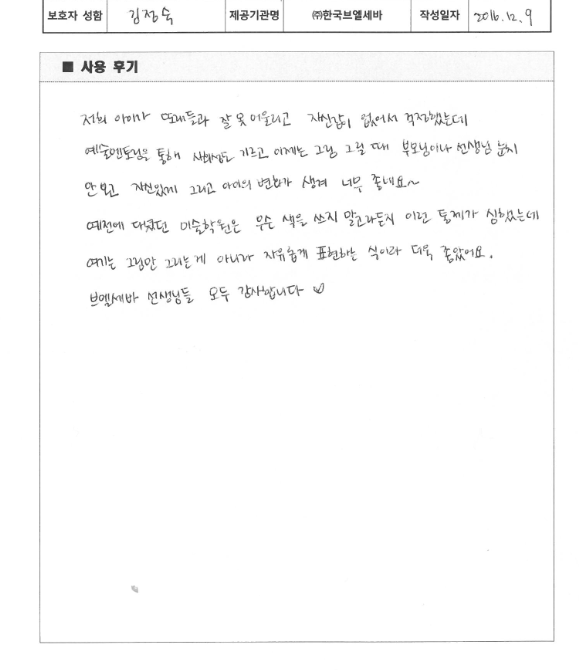 보호자 성함 김정숙 제공기관명 ㈜한국브엘세바 작성일자 2016.12.9
■ 사용 후기
저희 아이가 또래들과 잘 못 어울리고 자신감이 없어서 걱정했는데
예술멘토링을 통해 사회성도 기르고 이제는 그림 그릴 때 부모님이나 선생님 눈치
안보고 자신있게 그리고 아이의 변화가 생겨 너무 좋네요~
예전에 다녔던 미술학원은 무슨 색을 쓰지 말고라든지 이런 통제가 심했는데
여기는 그림만 그리는게 아니라 자유롭게 표현하는 식이라 더욱 좋았어요.
브엘세바 선생님들 모두 감사합니다 ♡